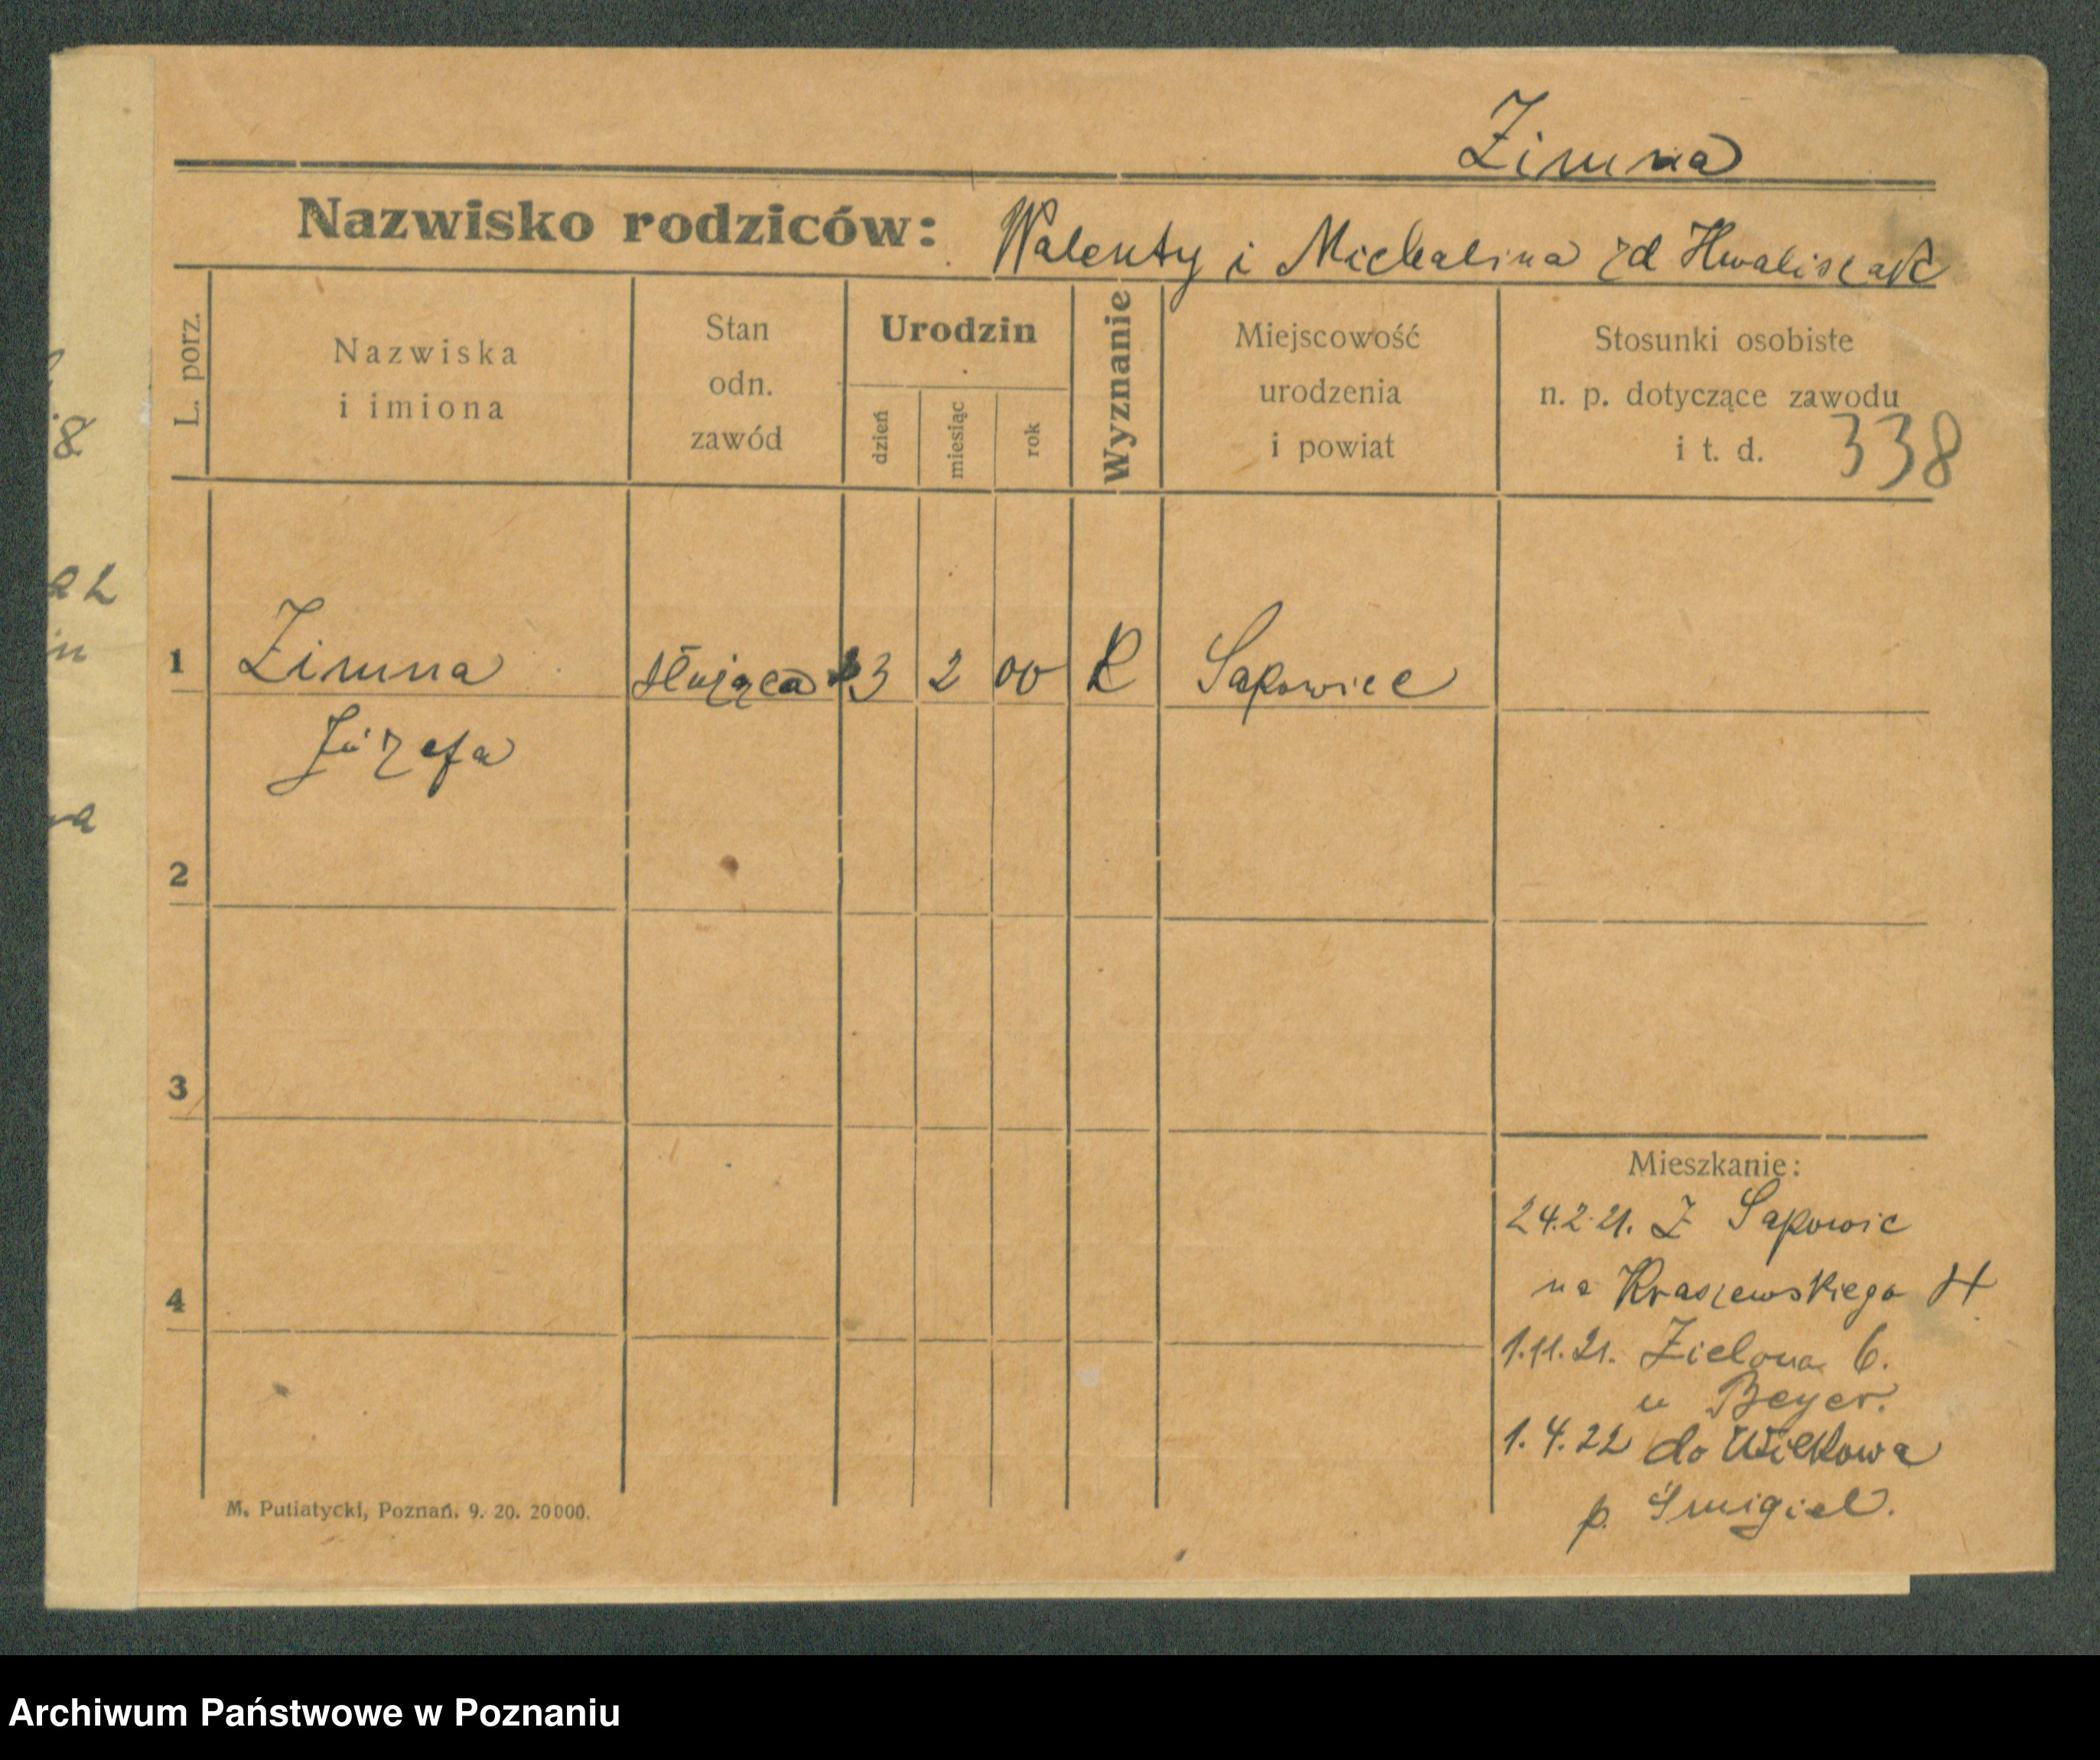 Zimna
Nazwisko rodziców: Walenty i Michalina zd Hwaliszak
L. porz.
Nazwiska
i imiona
Stan
odn.
zawód
Urodzin
dzień
miesiąc
rok
Wyznanie
Miejscowość
urodzenia
i powiat
Stosunki osobiste
n. p. dotyczące zawodu
i t. d.
338
1 Zimna służąca 3 2 00 R Sapowice
Józefa
2
3
4
Mieszkanie:
24.2.21. Z Sapowic
na Kraszewskiego
1.11.21. Zielona 6.
u Beyer.
1.4.22 do Wilkowa
p. Śmigiel.
M. Putiatycki, Poznań. 9. 20. 20000.
8
in
Archiwum Państwowe w Poznaniu